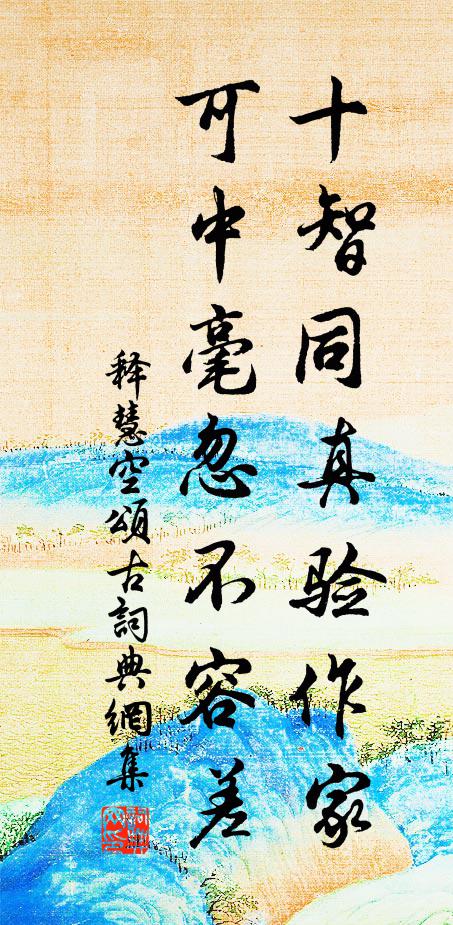 十智同真验作家
可中毫忽不容差
释慧空頌古詞典網集